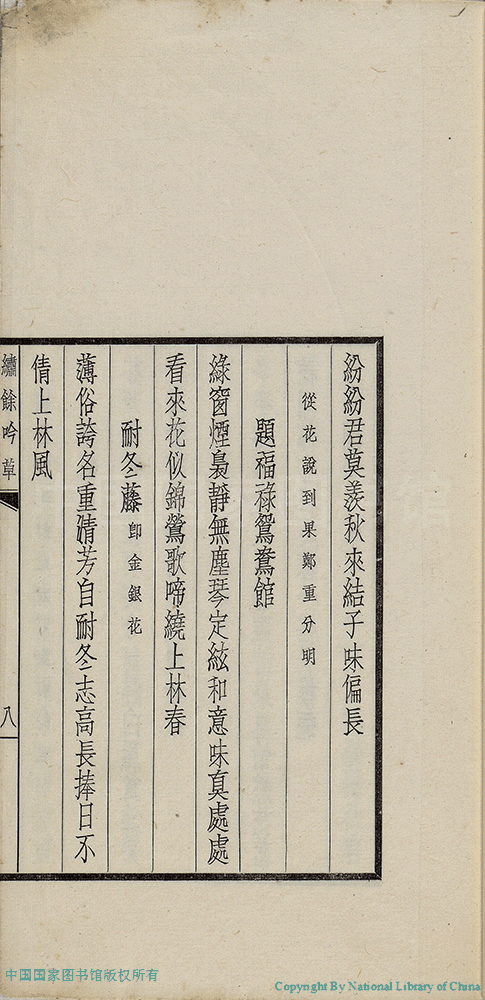 紛紛君莫羨秋來結子味偏長
從花說到果鄭重分明
題福祿鴛鴦館
綠窗煙裊靜無塵琴定絃和意味真處處
看來花似錦鶯歌啼繞上林春
耐冬藤即金銀花
薄俗誇名重清芳自耐冬志高長捧日不
倩上林風
繡餘吟草
八
中国国家图书馆版权所有
Copyright By National Library of China